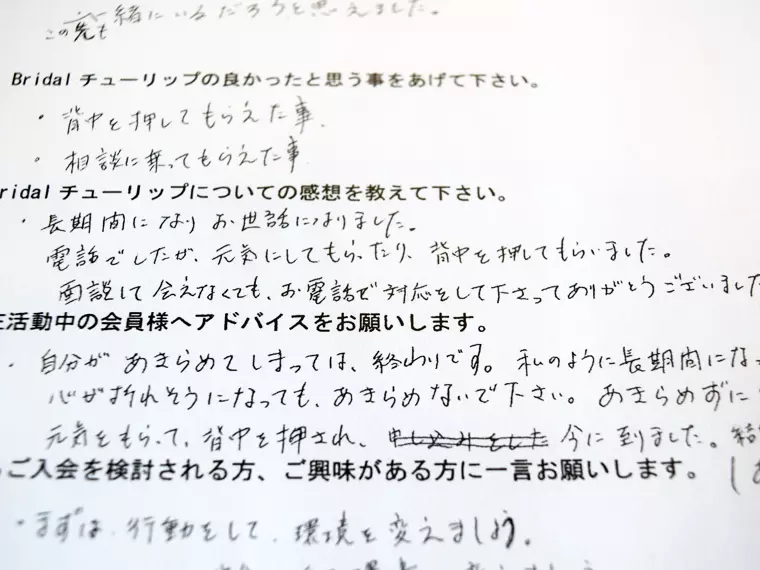 この先も一緒にいるだろうと思えました。
Bridal チューリップの良かったと思う事をあげて下さい。
・背中を押してもらえた事.
・相談に乗ってもらえた事.
ridal チューリップについての感想を教えて下さい。
・長期間になりお世話になりました。
電話でしたが、元気にしてもらったり、背中を押してもらいました。
面談して会えなくても、お電話で対応をして下さってありがとうございました
活動中の会員様へアドバイスをお願いします。
・自分があきらめてしまっては、終わりです。私のように長期間になっ
心が折れそうになっても、あきらめないで下さい。あきらめずに
元気をもらって、背中を押され、申し込みをした 今に至りました。結
ご入会を検討される方、ご興味がある方に一言お願いします。
・まずは、行動をして、環境を変えましょう。